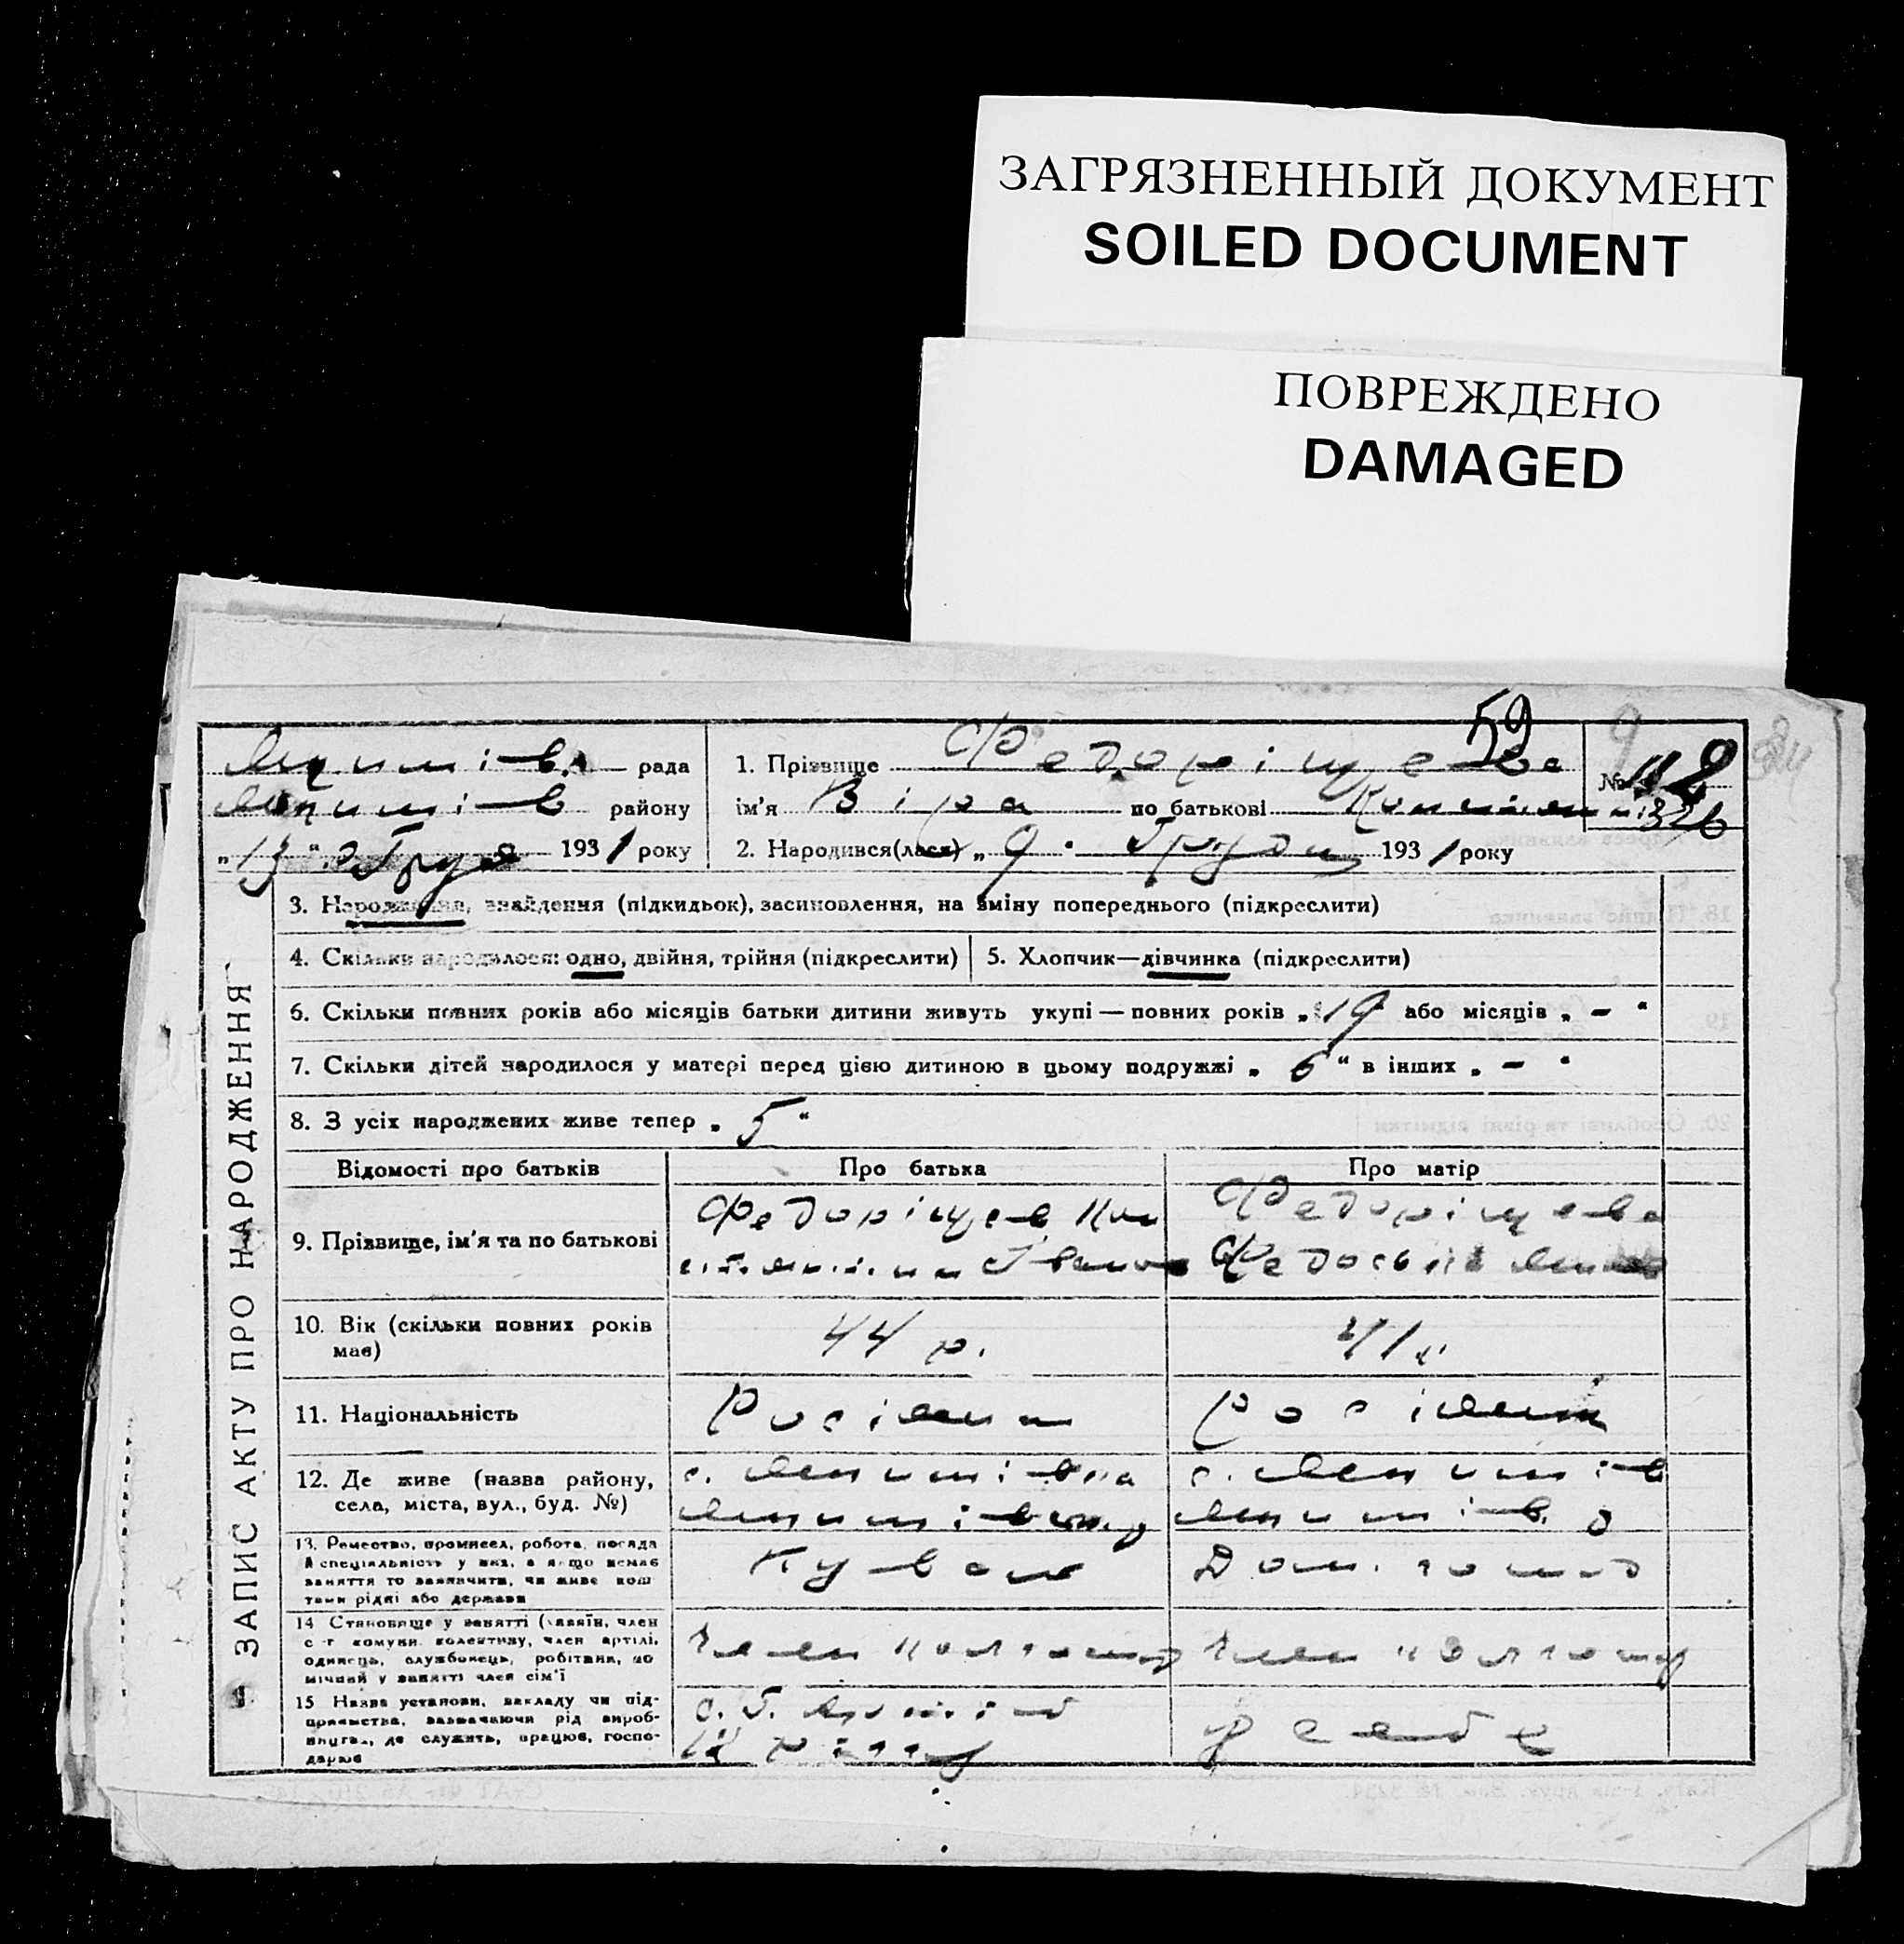 ЗАГРЯЗНЕННЫЙ ДОКУМЕНТ
SOILED DOCUMENT
ПОВРЕЖДЕНО
DAMAGED
59
рада
району
„13“ Груд 1931 року
1. Прізвище Федоріщева
ім'я Віра по батькові
2. Народився(лася) „9“ Грудн 1931 року
№ 118
326
ЗАПИС АКТУ ПРО НАРОДЖЕННЯ
3. Народження, знайдення (підкидьок), засиновлення, на зміну попереднього (підкреслити)
4. Скільки народилося: одно, двійня, трійня (підкреслити)
5. Хлопчик—дівчинка (підкреслити)
6. Скільки повних років або місяців батьки дитини живуть укупі — повних років „19“ або місяців „ — “
7. Скільки дітей народилося у матері перед цією дитиною в цьому подружжі „ 6 “ в інших „ — “
8. З усіх народжених живе тепер „ 5 “
Відомості про батьків
Про батька
Про матір
9. Прізвище, ім'я та по батькові
Федоріщев Кон
Федоріщева
Федосія
10. Вік (скільки повних років має)
44 р.
41 р.
11. Національність
Росіянин
Росіянка
12. Де живе (назва району, села, міста, вул., буд. №)
13. Ремество, промисел, робота, посада й спеціяльність у них, а якщо немає заняття то зазначити, чи живе коштами рідні або держави
Коваль
Дом. госп
14 Становище у занятті (хазяїн, член с.-г комуни колективу, член артілі, одинець, службовець, робітник, помічний у занятті член сім'ї
Член колгоспу
Член колгоспу
15 Назва установи, закладу чи підприємства, зазначаючи рід виробництва, де служить, працює, господарює